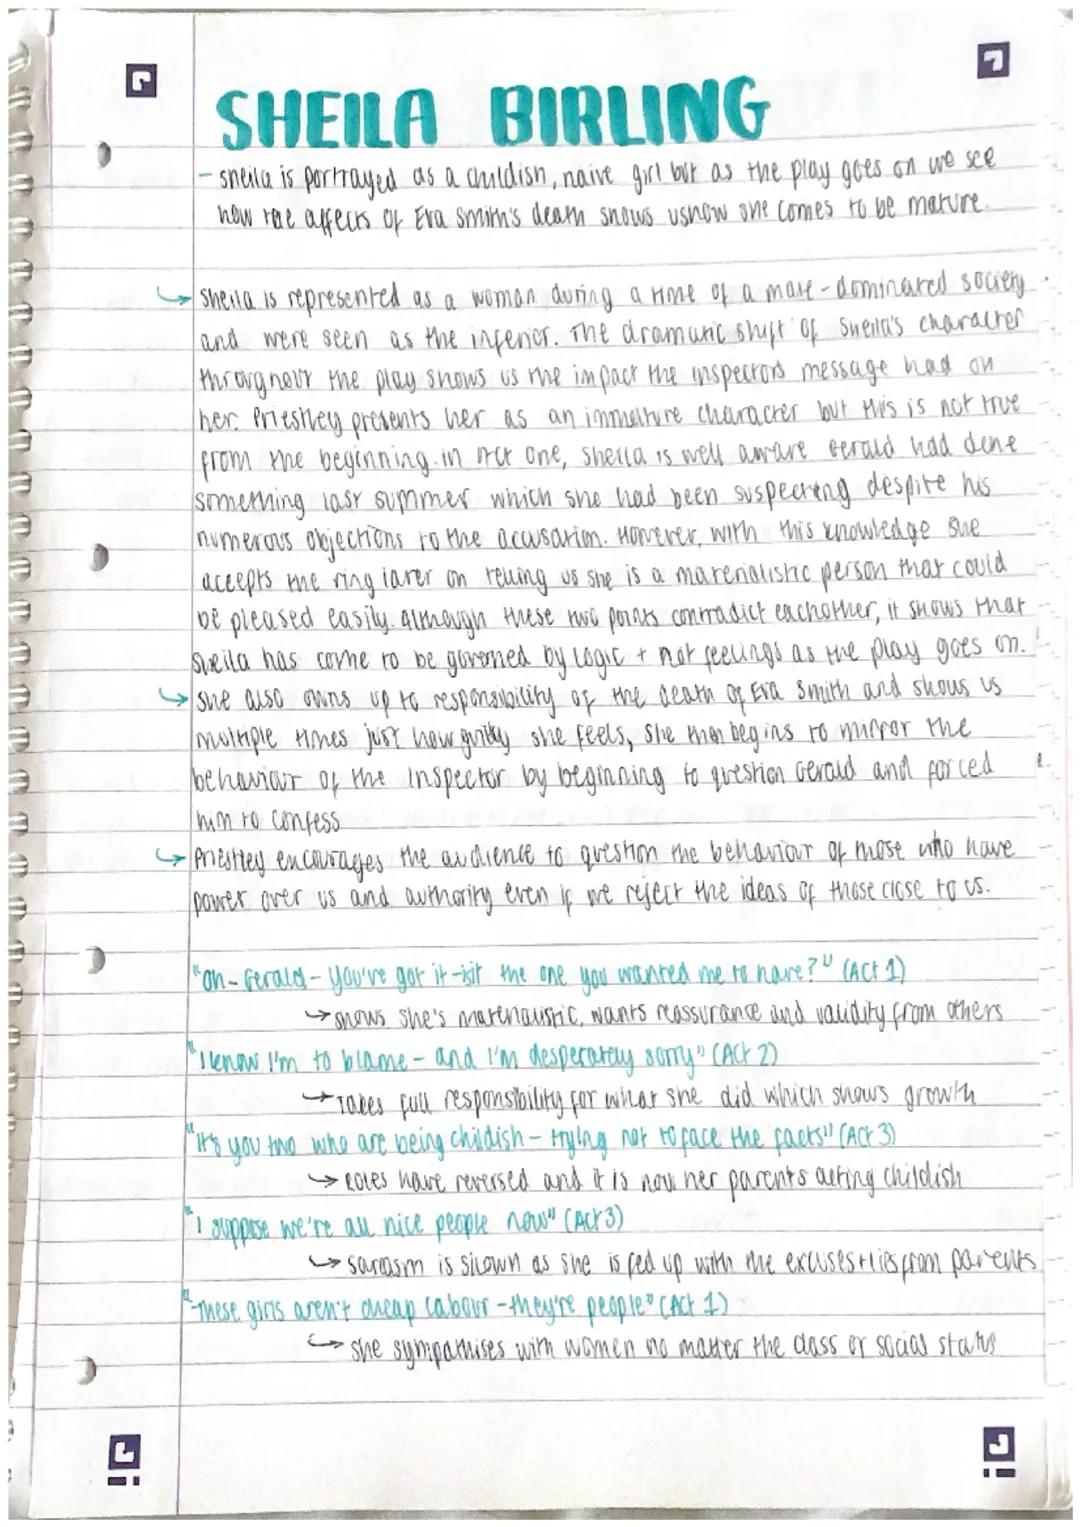 SHEILA BIRLING
- sheila is portrayed as a childish, naive girl but as the play goes on we see
how the affects of Eva Smith's death shows us how she comes to be mature.
↳ Sheila is represented as a woman during a time of a male-dominated society
and were seen as the inferior. The dramatic shift of Sheila's character
throughout the play shows us the impact the inspectors message had on
her. Priestley presents her as an immature character but this is not true
from the beginning. in Act one, Sheila is well aware Gerald had done
something last summer which she had been suspecting despite his
numerous objections to the acusation. However, with this knowledge she
accepts the ring later on telling us she is a materialistic person that could
be pleased easily. although these two points contradict eachother, it shows that
Sheila has come to be governed by logic + not feelings as the play goes on.
↳ She also owns up to responsibility of the death of Eva Smith and shows us
multiple times just how guilty she feels, she then begins to mirror the
behaviour of the Inspector by beginning to question Gerald and forced
him to confess
↳ Priestley encourages the audience to question the behaviour of those who have
power over us and authority even if we reject the ideas of those close to us.
"Oh - Gerald - You've got it - is it the one you wanted me to have?" (Act 1)
→ shows she's materialistic, wants reassurance and validity from others
"I know I'm to blame - and I'm desperately sorry" (Act 2)
→ Takes full responsibility for what she did which shows growth
"It's you two who are being childish - trying not to face the facts" (Act 3)
→ Roles have reversed and it is now her parents acting childish
"I suppose we're all nice people now" (Act 3)
↳ sarcasm is shown as she is fed up with the excuses + lies from parents
"These girls aren't cheap labour - they're people" (Act 1)
↳ she sympathises with women no matter the class or social status